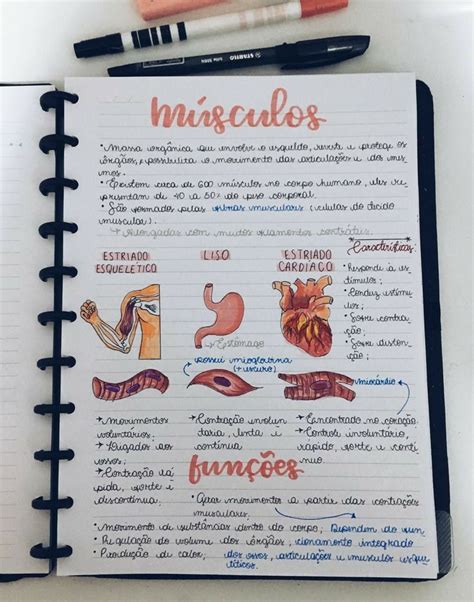 STABILO
músculos
• Massa orgânica que envolve o esqueldo, reveste e protege os
órgãos, possibilita o movimento das articulações e do mes-
mos.
• Existem cerca de 600 músculos no corpo humano, eles re-
presentam de 40 a 50% do peso corporal.
• São formados pelas fibras musculares (células do tecido
muscular).
↳ Alongadas com muitos filamentos contráteis.
ESTRIADO ESQUELÉTICO
LISO
ESTRIADO CARDÍACO
Características:
• Responde à es
tímulos;
• Conduz estímu
los;
• Sofre contra
ção;
• Sofre disten
ção;
↳ Estômago
possui mioglobina
(+ escuro)
miocárdio
→ Movimentos
voluntários;
→ Ligados aos
ossos;
→ Contração rá
pida, forte e
descontínua.
→ Contração involun
tária, lenta e
contínua
→ Encontrado no coração
→ Controle involuntário,
rápido, forte e contí
nuo.
funções
• Gerar movimentos a partir das contrações
musculares.
• Movimento de substâncias dentro do corpo; Dependem do fun-
• Regulação do volume dos órgãos; cionamento integrado
• Produção de calor; dos ossos, articulações e músculos esque-
léticos.